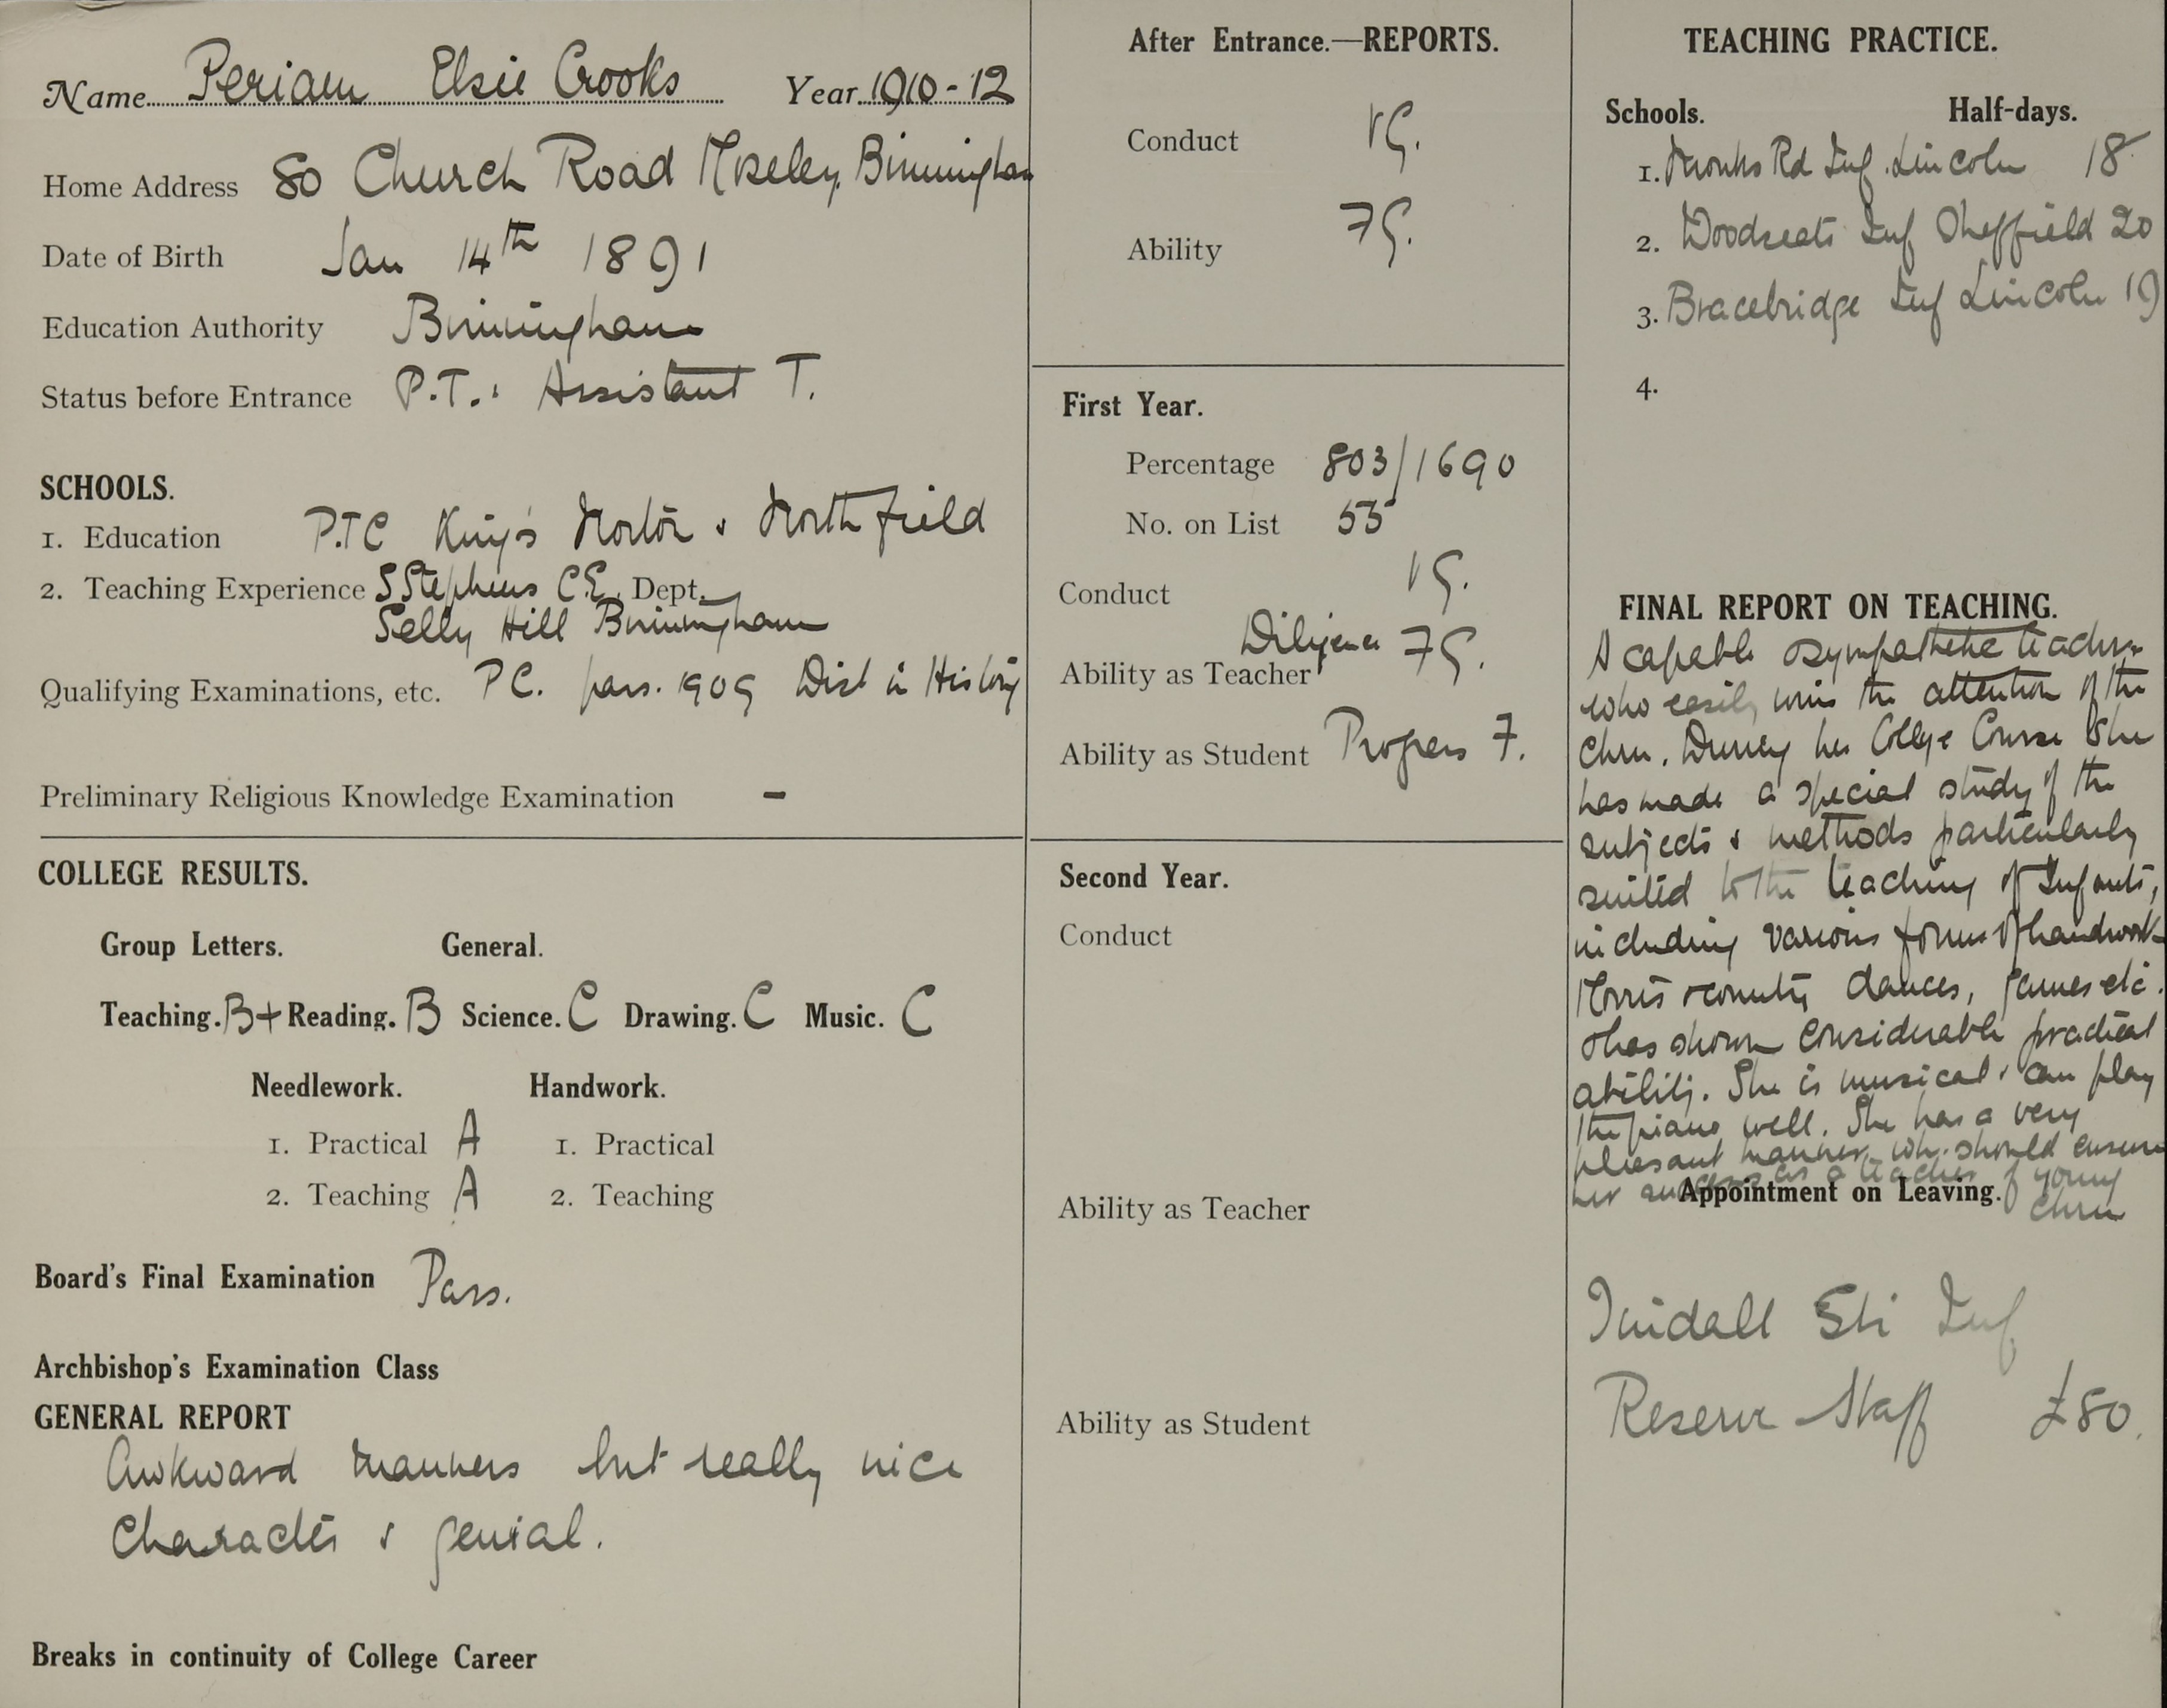 Name Periam Elsie Crooks Year 1910-12
Home Address 80 Church Road Moseley, Birmingham
Date of Birth Jan 14th 1891
Education Authority Birmingham
Status before Entrance P.T. & Assistant T.
SCHOOLS.
1. Education P.T.C King's Norton & Northfield
2. Teaching Experience S Stephens C.E. Dept.
Selly Hill Birmingham
Qualifying Examinations, etc. P C. pass. 1909 Dist in History
Preliminary Religious Knowledge Examination -
COLLEGE RESULTS.
Group Letters. General.
Teaching. B+ Reading. B Science. C Drawing. C Music. C
Needlework. Handwork.
1. Practical A 1. Practical
2. Teaching A 2. Teaching
Board's Final Examination Pass.
Archbishop's Examination Class
GENERAL REPORT
Awkward manners but really nice
character & genial.
Breaks in continuity of College Career
After Entrance.—REPORTS.
Conduct VG.
Ability FG.
First Year.
Percentage 803/1690
No. on List 55
Conduct VG.
Diligence FG.
Ability as Teacher
Ability as Student Progress F.
Second Year.
Conduct
Ability as Teacher
Ability as Student
TEACHING PRACTICE.
Schools. Half-days.
1. Monks Rd Inf. Lincoln 18
2. Woodseats Inf Sheffield 20
3. Bracebridge Inf Lincoln 19
4.
FINAL REPORT ON TEACHING.
A capable sympathetic teacher
who easily wins the attention of the
chn. During her College Course she
has made a special study of the
subjects & methods particularly
suited to the teaching of Infants,
including various forms of handwork
Morris & country dances, games etc.
& has shown considerable practical
ability. She is musical & can play
the piano well. She has a very
pleasant manner wh. should ensure
her success as a teacher of young
chn
Appointment on Leaving.
Tindall St Inf
Reserve Staff £80.